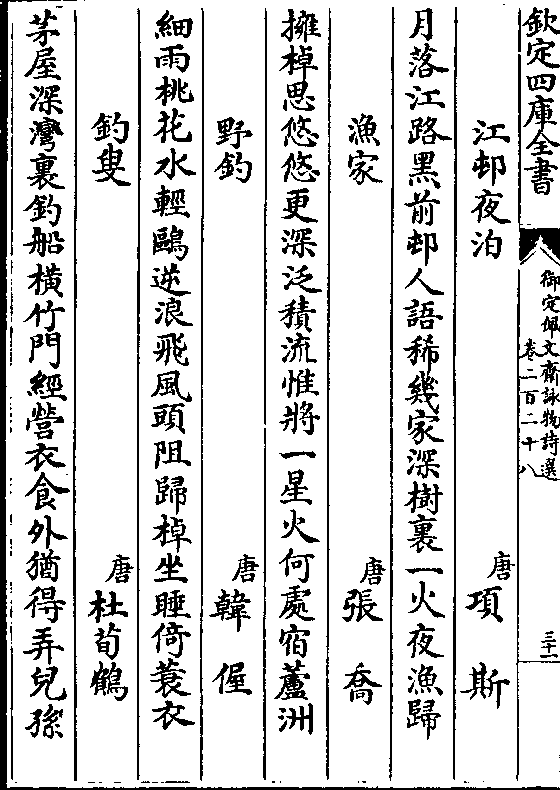 欽定四庫全書
御定佩文齋詠物詩選
卷二百二十八
三十一
江邨夜泊 唐 項斯
月落江路黑前邨人語稀幾家深樹裏一火夜漁歸
漁家 唐 張喬
擁棹思悠悠更深泛積流惟將一星火何處宿蘆洲
野釣 唐 韓偓
細雨桃花水輕鷗逆浪飛風頭阻歸棹坐睡倚蓑衣
釣叟 唐 杜荀鶴
茅屋深灣裏釣船橫竹門經營衣食外猶得弄兒孫